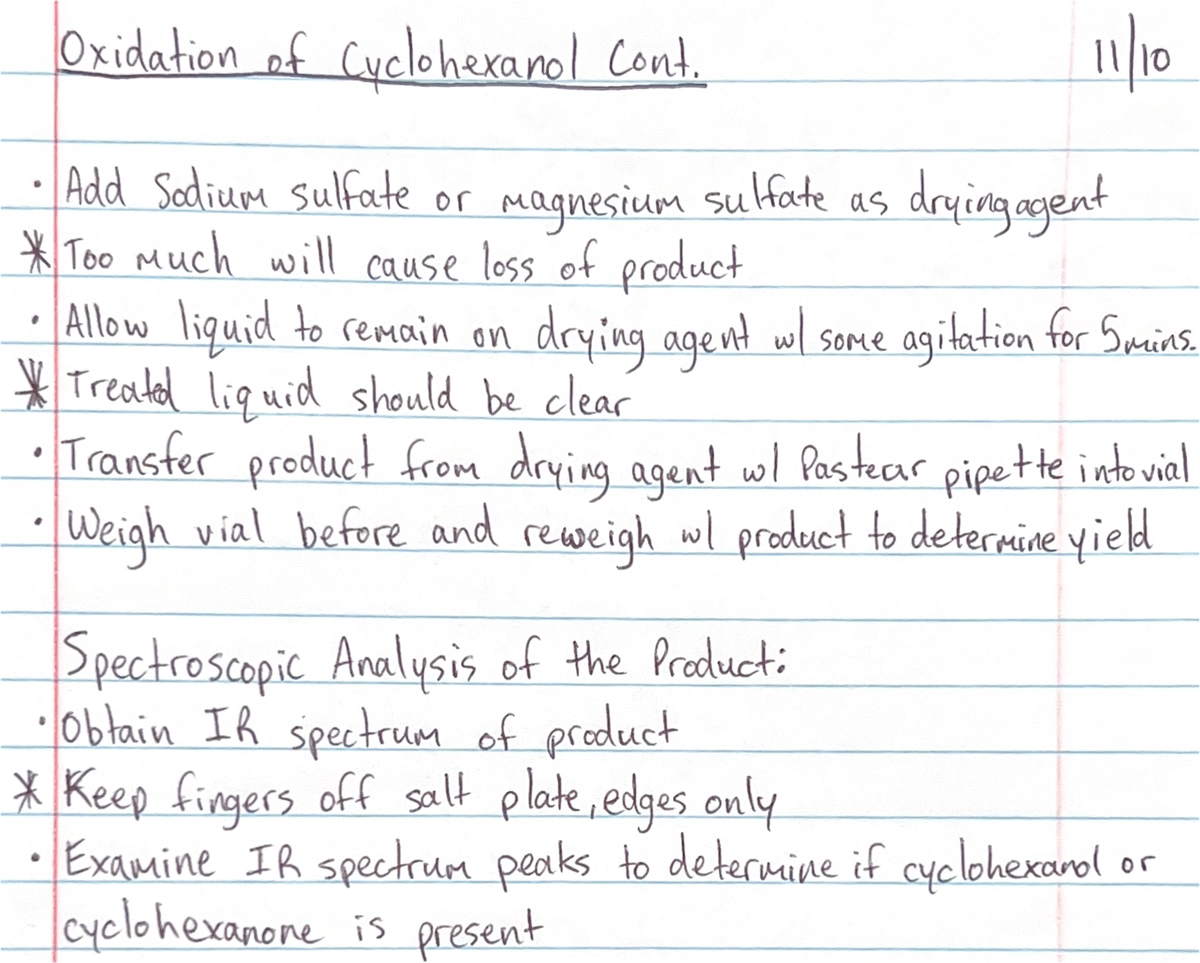 Oxidation of Cyclohexanol Cont. 11/10
· Add Sodium sulfate or magnesium sulfate as drying agent
* Too much will cause loss of product
· Allow liquid to remain on drying agent w/ some agitation for 5 mins.
* Treated liquid should be clear
· Transfer product from drying agent w/ Pastear pipette into vial
· Weigh vial before and reweigh w/ product to determine yield
Spectroscopic Analysis of the Product:
· Obtain IR spectrum of product
* Keep fingers off salt plate, edges only
· Examine IR spectrum peaks to determine if cyclohexanol or
cyclohexanone is present